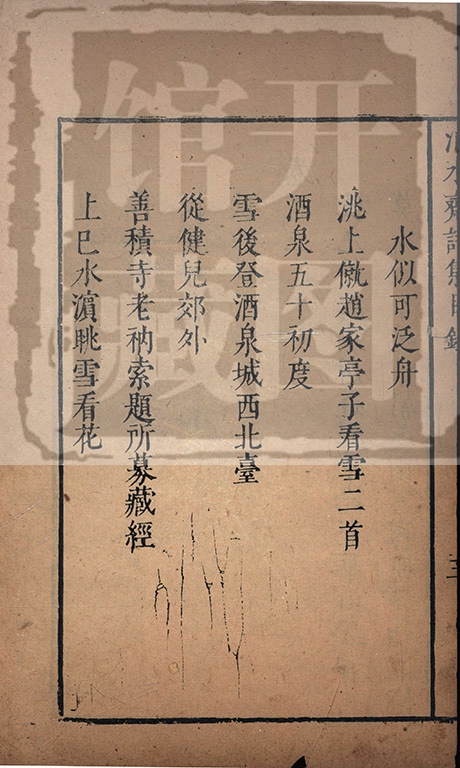 水似可泛舟
洮上僦趙家亭子看雪二首
酒泉五十初度
雪後登酒泉城西北臺
從健兒郊外
善積寺老衲索題所募藏經
上巳水濵眺雪看花
開圖
館藏